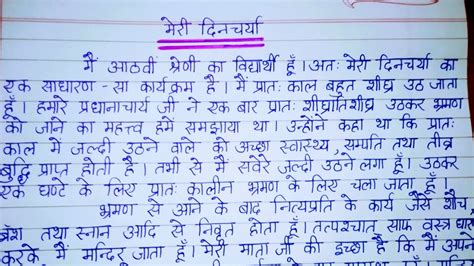 मेरी दिनचर्या
मैं आठवीं श्रेणी का विद्यार्थी हूँ। अतः मेरी दिनचर्या का
एक साधारण-सा कार्यक्रम है। मैं प्रातः काल बहुत शीघ्र उठ जाता
हूँ। हमारे प्रधानाचार्य जी ने एक बार प्रातः शीघ्रातिशीघ्र उठकर भ्रमण
को जाने का महत्त्व हमें समझाया था। उन्होंने कहा था कि प्रातः
काल में जल्दी उठने वाले को अच्छा स्वास्थ्य, सम्पति तथा तीव्र
बुद्धि प्राप्त होती है। तभी से मैं सवेरे जल्दी उठने लगा हूँ। उठकर
एक घण्टे के लिए प्रातः कालीन भ्रमण के लिए चला जाता हूँ।
भ्रमण से आने के बाद नित्यप्रति के कार्य जैसे शौच,
ब्रश तथा स्नान आदि से निवृत होता हूँ। तत्पश्चात साफ वस्त्र धारण
करके मैं मन्दिर जाता हूँ। मेरी माता जी की इच्छा है कि मैं अपने